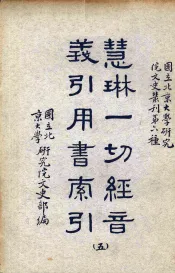 國立北京大學研究
院文史叢刊第六種
慧琳一切經音
義引用書索引
(五)
國立北
京大學研究院文史部編